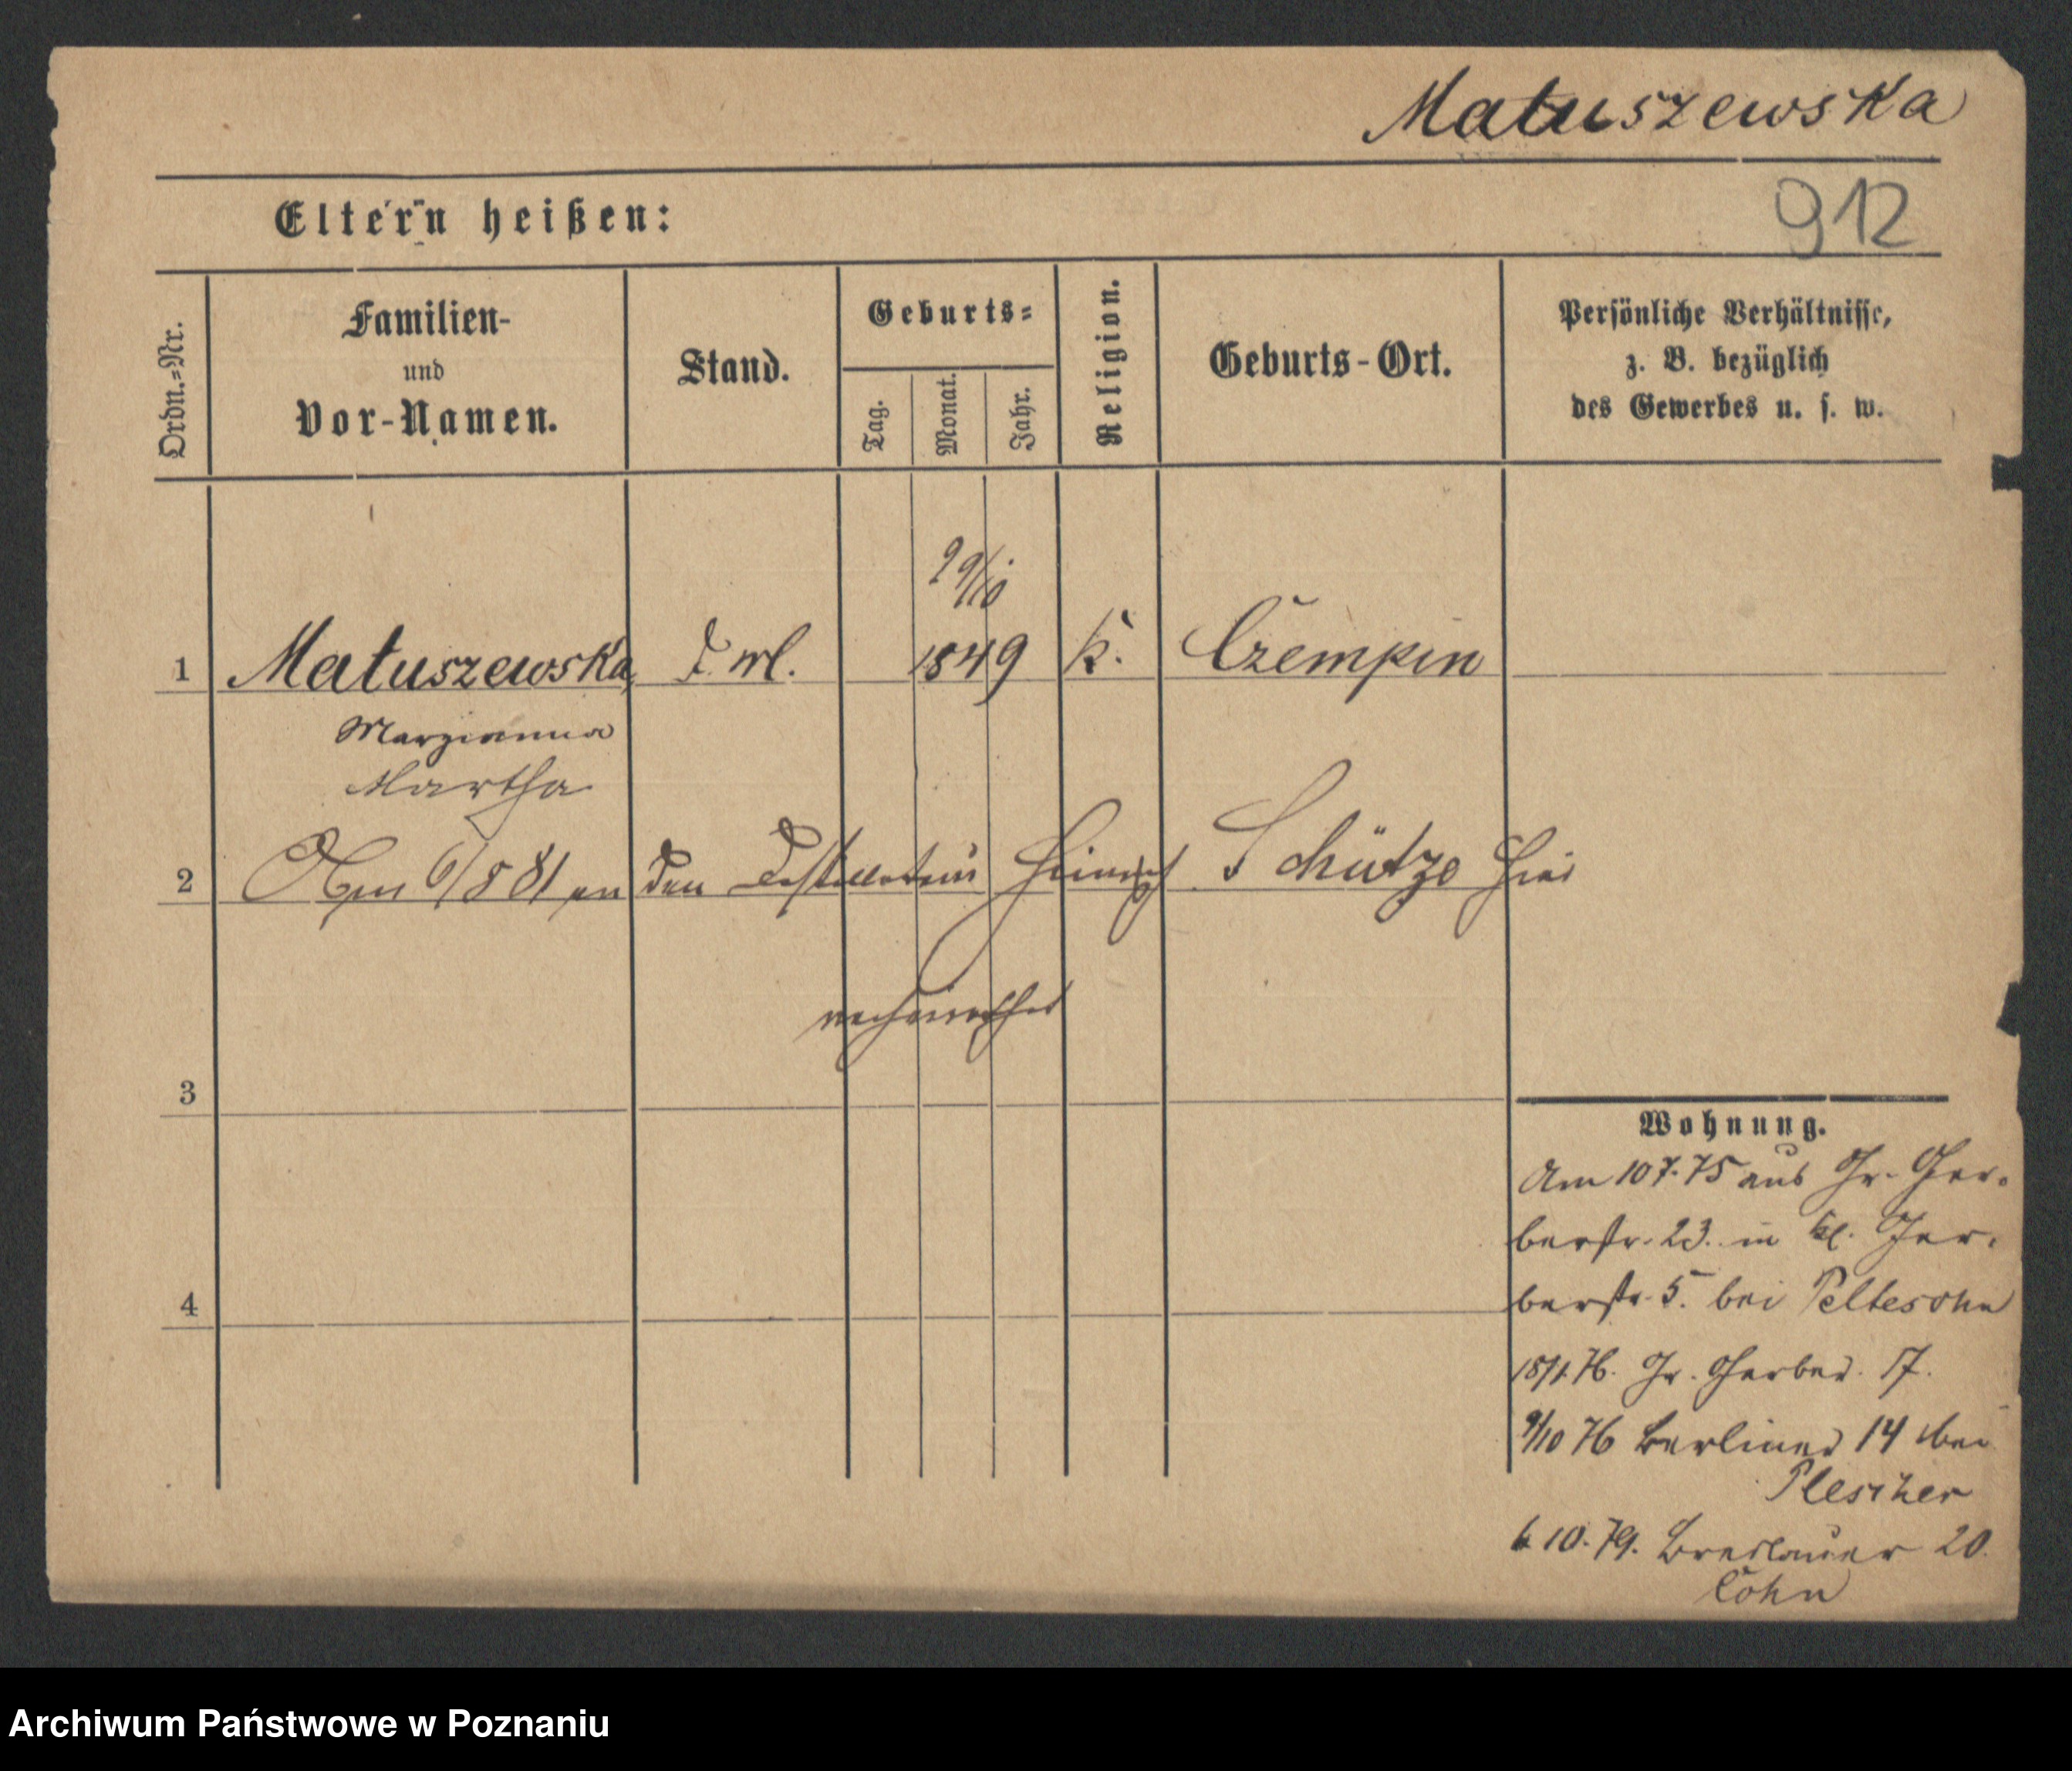 Matuszewska
912
Eltern heißen:
Ordn.=Nr.
Familien-
und
Vor-Namen.
Stand.
Geburts=
Tag.
Monat.
Jahr.
Religion.
Geburts-Ort.
Persönliche Verhältnisse,
z. B. bezüglich
des Gewerbes u. s. w.
29/10
1 Matuszewska, 1849 k. Czempin
Maryianna
Martha
2 Am 6/8 81 an den Destillateur Heinrich Schütze hier
verheirathet
3
Wohnung.
Am 10 7. 75 aus Gr. Ger-
berstr. 23. in kl. Ger-
4
berstr. 5. bei Peltesohn
18/1. 76. Gr. Gerber. 17.
9/10 76 Berliner 14 bei
Plescher
6 10. 79. Breslauer 20.
Cohn
Archiwum Państwowe w Poznaniu